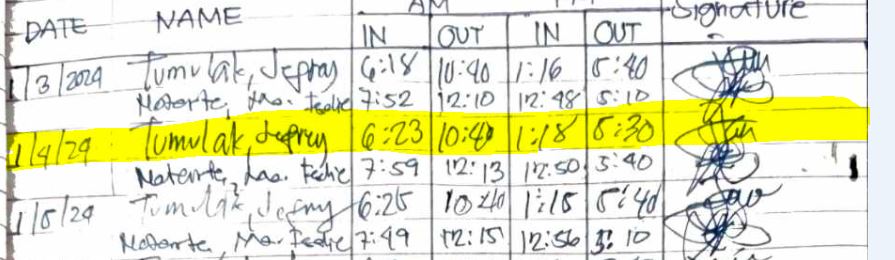 AM
DATE NAME IN OUT IN OUT Signature
1/3/2024 Tumulak, Jepray 6:18 10:40 1:16 5:40
Notarte, Ma. Fedie 7:52 12:10 12:48 5:10
1/4/24 Tumulak, Jepray 6:23 10:40 1:18 5:30
Notarte, Ma. Fedie 7:59 12:13 12:50 5:40
1/5/24 Tumulak, Jepray 6:25 10:40 1:15 5:40
Notarte, Ma. Fedie 7:49 12:15 12:56 5:10